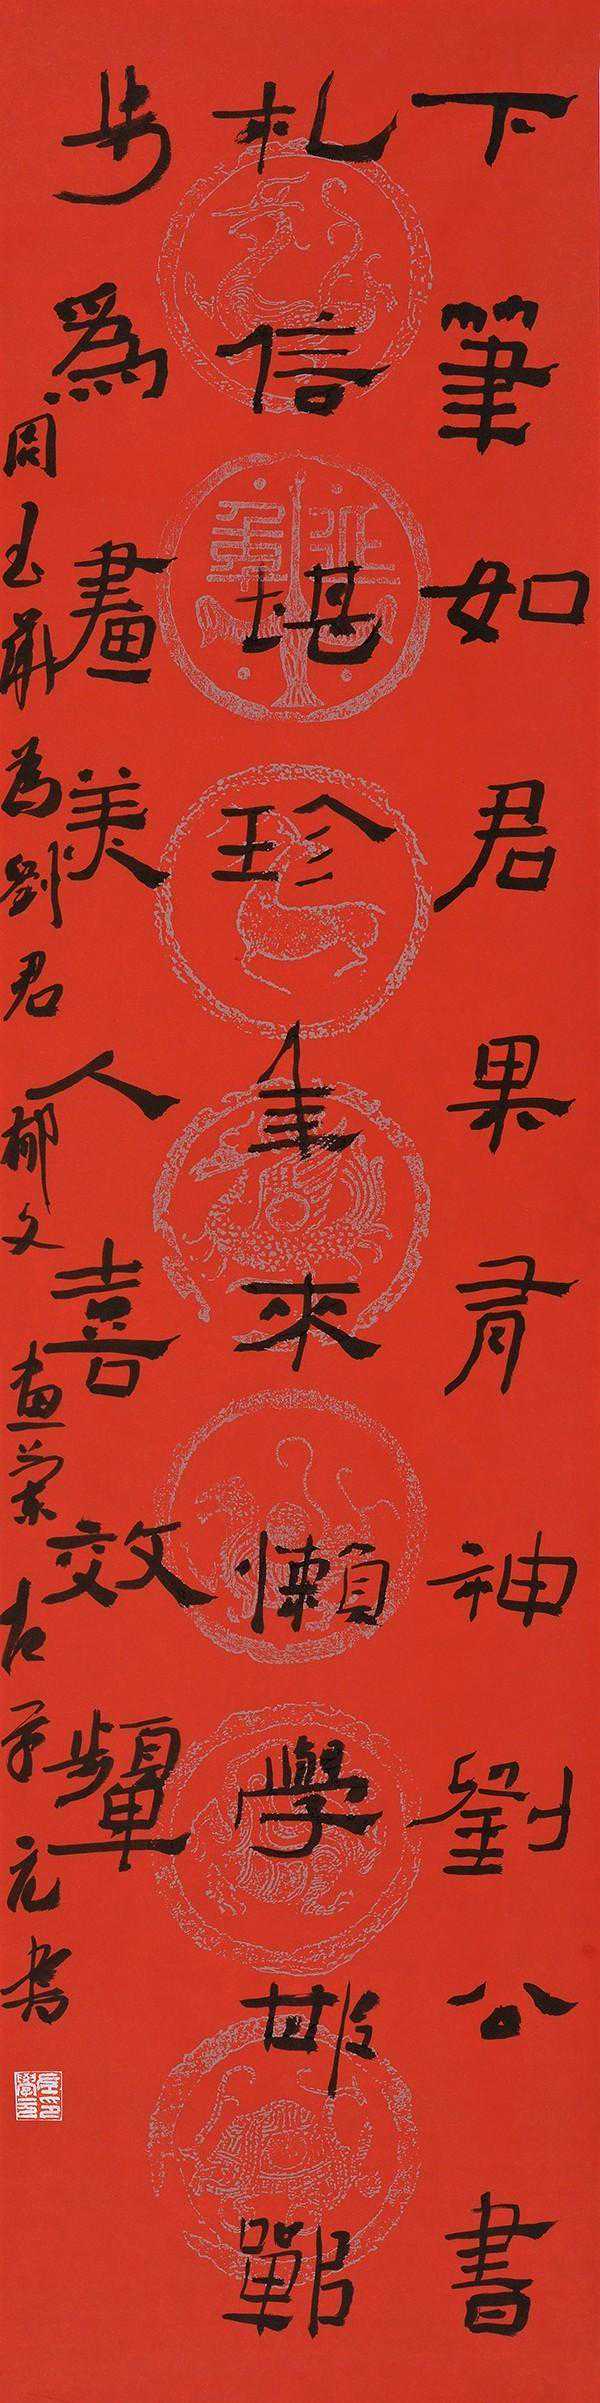 下筆如君果有神劉公書
札信堪珍年來懶學邯鄲
步爲畫美人喜效顰
周玉華为劉君郁文畫 左学元书